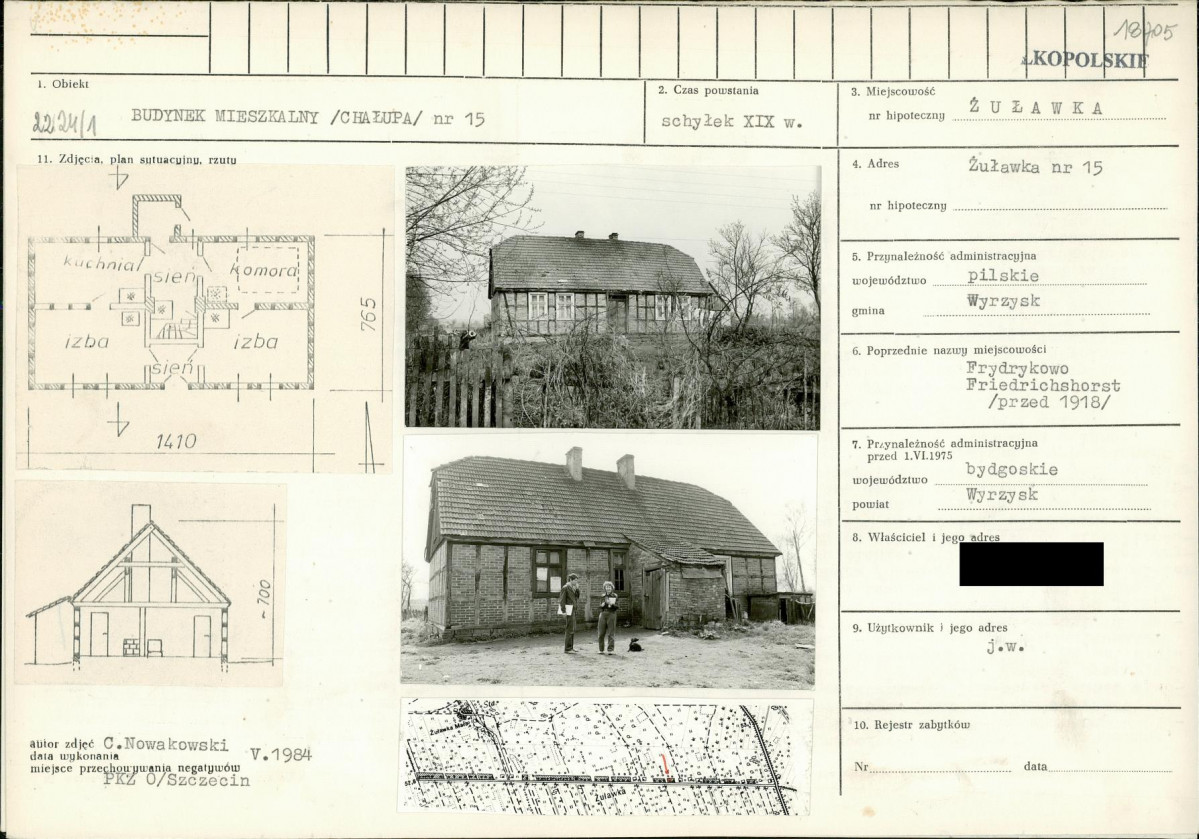 18705
LKOPOLSKIE
1. Obiekt
2224/1 BUDYNEK MIESZKALNY /CHAŁUPA/ nr 15
2. Czas powstania
schyłek XIX w.
3. Miejscowość
nr hipoteczny ŻUŁAWKA
11. Zdjęcia, plan sytuacyjny, rzuty
kuchnia
sień
komora
izba
sień
izba
765
1410
~700
Żuławka Mała
Żuławka
autor zdjęć C.Nowakowski
data wykonania V.1984
miejsce przechowywania negatywów
PKZ O/Szczecin
4. Adres Żuławka nr 15
nr hipoteczny
5. Przynależność administracyjna
województwo pilskie
gmina Wyrzysk
6. Poprzednie nazwy miejscowości
Frydrykowo
Friedrichshorst
/przed 1918/
7. Przynależność administracyjna
przed 1.VI.1975
województwo bydgoskie
powiat Wyrzysk
8. Właściciel i jego adres
9. Użytkownik i jego adres
j.w.
10. Rejestr zabytków
Nr data